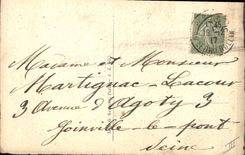 Madame et Monsieur
Martignac-Lacour
3 Avenue d'Agoty 3
Joinville-le-pont
Seine